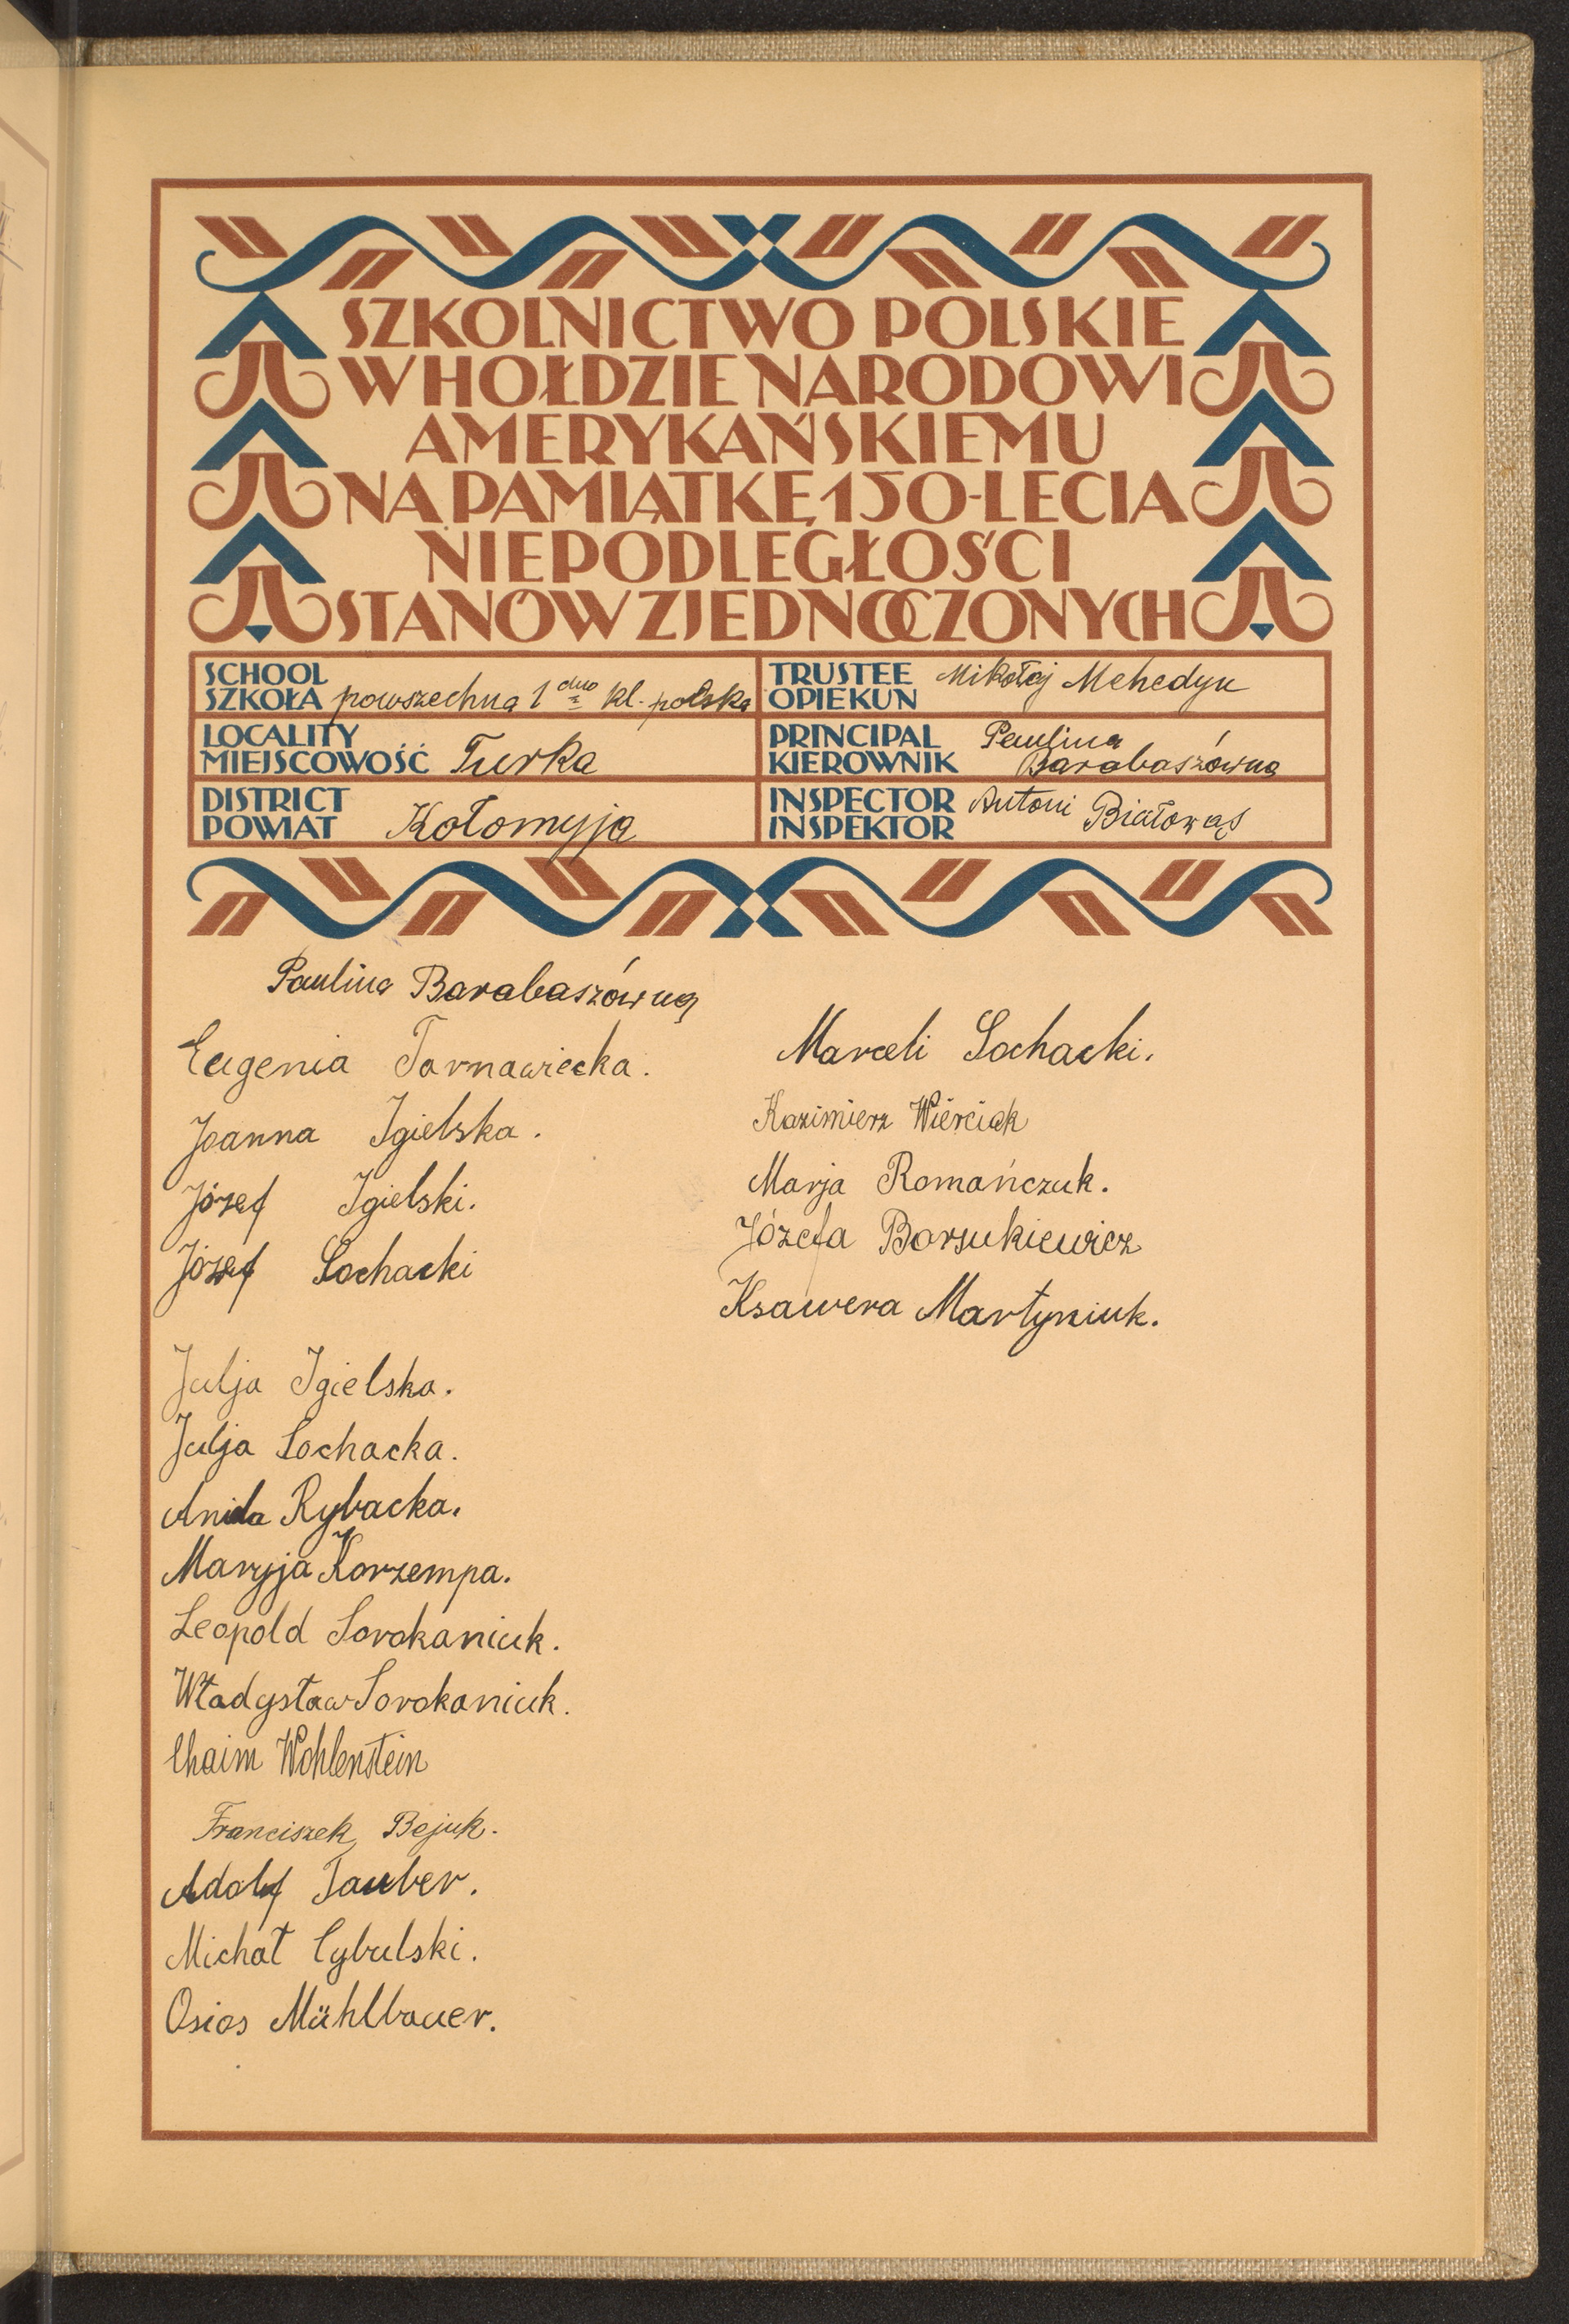 SZKOLNICTWO POLSKIE
W HOŁDZIE NARODOWI
AMERYKAŃSKIEMU
NA PAMIĄTKĘ 150-LECIA
NIEPODLEGŁOŚCI
STANÓW ZJEDNOCZONYCH
SCHOOL
SZKOŁA powszechna 1 kl. polska
TRUSTEE
OPIEKUN Mikołaj Mehedyn
LOCALITY
MIEJSCOWOŚĆ Turka
PRINCIPAL
KIEROWNIK Paulina
Barabaszówna
DISTRICT
POWIAT Kołomyja
INSPECTOR
INSPEKTOR Antoni Białowąs
Paulina Barabaszówna
Eugenia Tarnawiecka.
Joanna Igielska.
Józef Igielski.
Józef Sochacki
Julja Igielska.
Julja Sochacka.
Aniela Rybacka.
Maryja Korzempa.
Leopold Sorokaniuk.
Władysław Sorokaniuk.
Chaim Wohlenstein
Franciszek Bojuk.
Adolf Tauber.
Michał Cybulski.
Osias Mühlbauer.
Marceli Sochacki.
Kazimierz Wierciak
Marja Romańczuk.
Józefa Borsukiewicz
Ksawera Martyniuk.